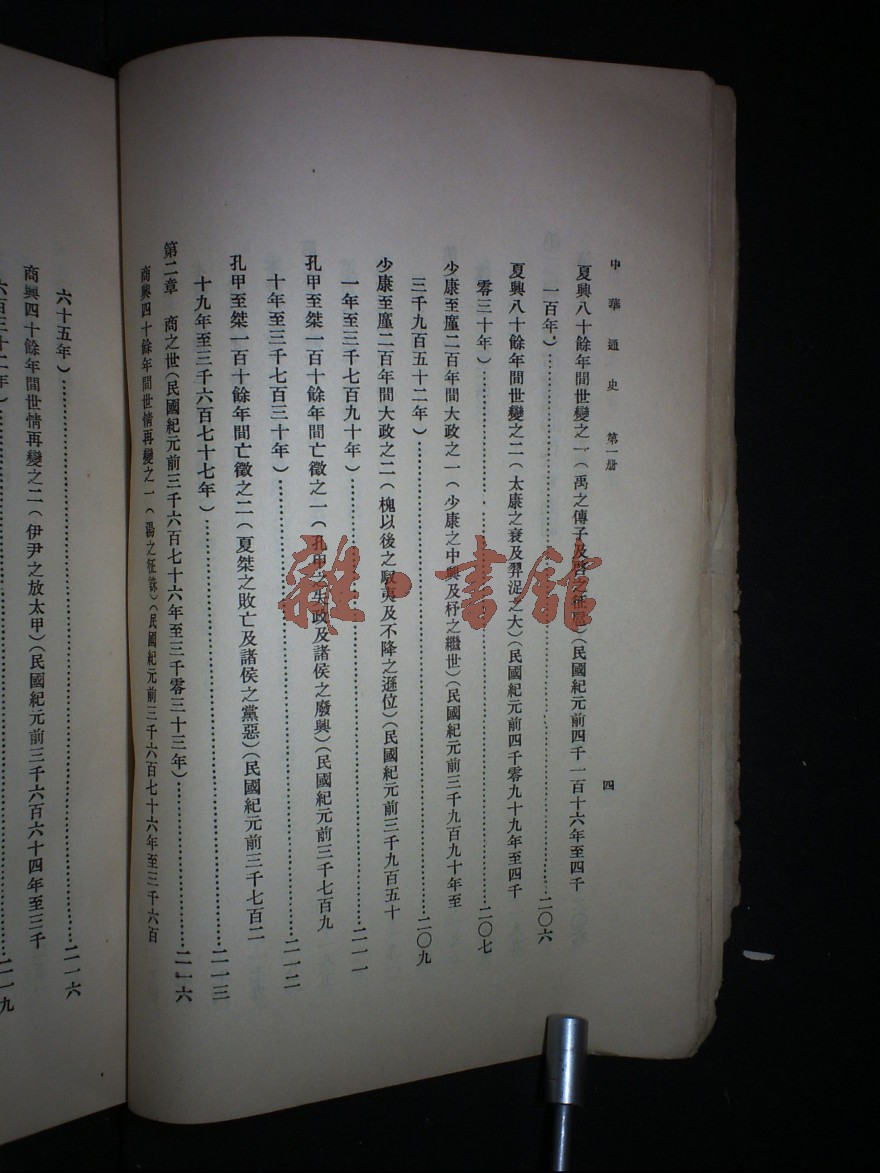 中華通史 第一册
四
夏興八十餘年間世變之一(禹之傳子及啓之征扈)(民國紀元前四千一百十六年至四千
一百年)……二〇六
夏興八十餘年間世變之二(太康之衰及羿浞之大)(民國紀元前四千零九十九年至四千
零三十年)……二〇七
少康至廑二百年間大政之一(少康之中興及杼之繼世)(民國紀元前三千九百九十年至
三千九百五十二年)……二〇九
少康至廑二百年間大政之二(槐以後之馭夷及不降之遜位)(民國紀元前三千九百五十
一年至三千七百九十年)……二一一
孔甲至桀一百十餘年間亡徵之一(孔甲之失政及諸侯之廢興)(民國紀元前三千七百九
十年至三千七百三十年)……二一二
孔甲至桀一百十餘年間亡徵之二(夏桀之敗亡及諸侯之黨惡)(民國紀元前三千七百二
十九年至三千六百七十七年)……二一三
第二章 商之世(民國紀元前三千六百七十六年至三千零三十三年)……二一六
商興四十餘年間世情再變之一(湯之征誅)(民國紀元前三千六百七十六年至三千六百
六十五年)……二一六
商興四十餘年間世情再變之二(伊尹之放太甲)(民國紀元前三千六百六十四年至三千
六百三十二年)……二一九
雜·書館